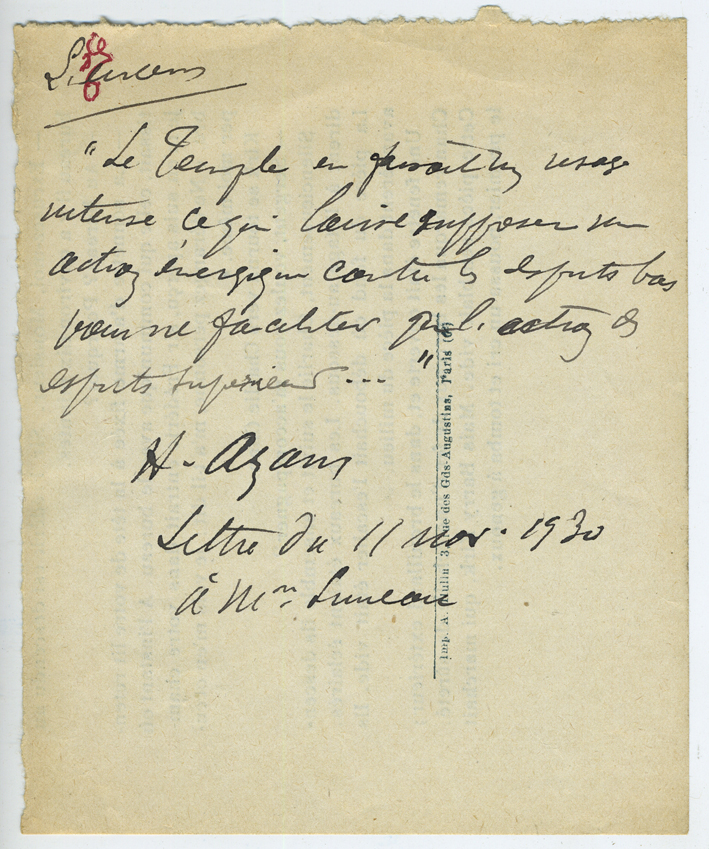 L'Encens
"Le Temple en faisait un usage
intense ce qui laisse supposer une
action énergique contre les esprits bas
pour ne faciliter que l'action des
esprits supérieurs ... "
H. Azam
Lettre du 11 nov. 1930
à Mr
Imp. A. Mullin 3, des Gds-Augustins, Paris